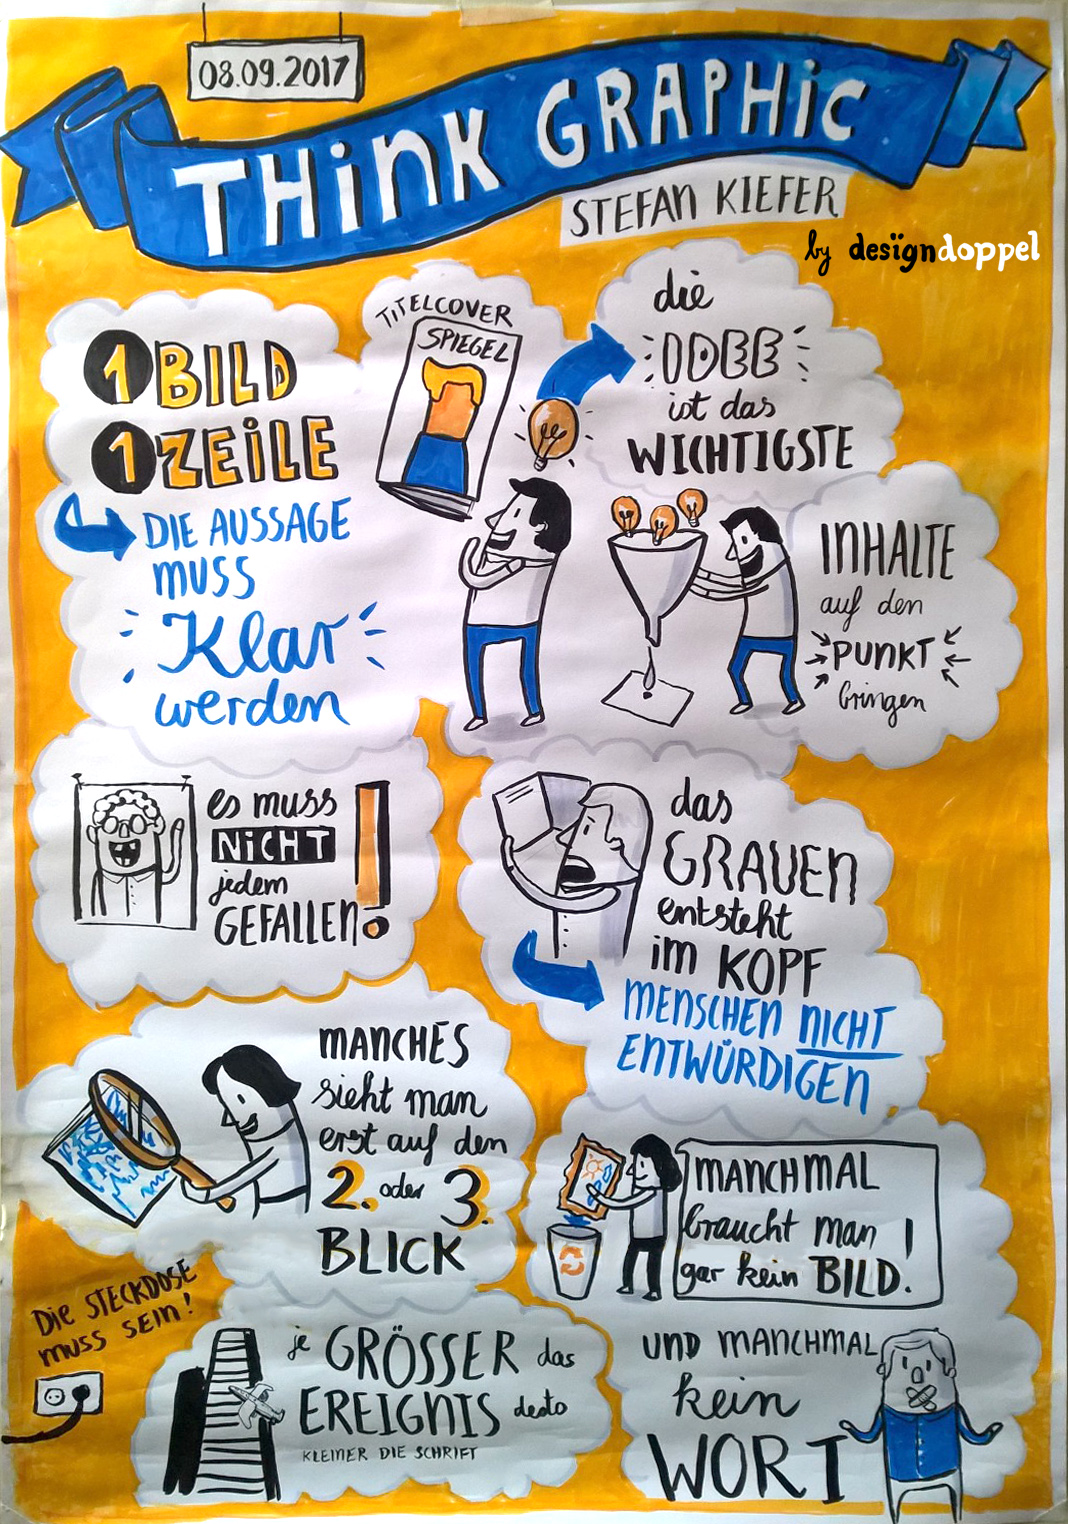 08.09.2017
THiNK GRAPHiC
STEFAN KIEFER
by desïgndoppel
1 BILD
1 ZEiLE
DIE AUSSAGE
MUSS
Klar
werden
TITELCOVER
SPIEGEL
die
IDEE
ist das
WICHTIGSTE
INHALTE
auf den
PUNKT
bringen
es muss
NiCHT
jedem
GEFALLEN!
das
GRAUEN
entsteht
im KOPF
MENSCHEN NICHT
ENTWÜRDIGEN
MANCHES
sieht man
erst auf den
2. oder 3.
BLICK
MANCHMAL
braucht man
gar kein BILD.!
Die STECKDOSE
MUSS SEIN!
je GRÖSSER das
EREIGNIS desto
KLEINER DIE SCHRIFT
UND MANCHMAL
kein
WORT